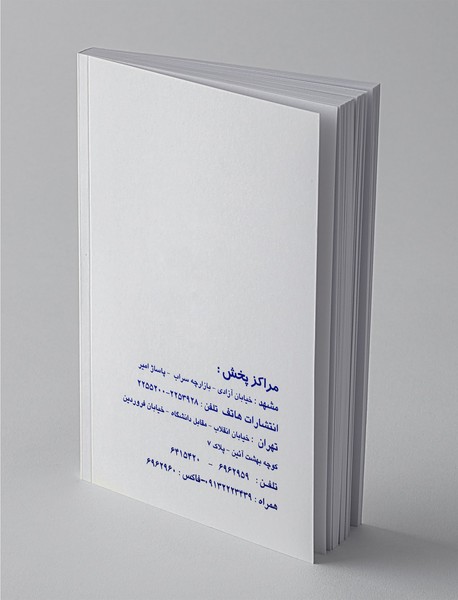 مراکز پخش :
مشهد : خیابان آزادی - بازارچه سراب - پاساژ امیر
انتشارات هاتف تلفن : ۲۲۵۳۹۲۸-۲۲۵۵۲۰۰
تهران : خیابان انقلاب - مقابل دانشگاه - خیابان فروردین
کوچه بهشت آئین - پلاک ۷
تلفن : ۶۹۶۲۹۵۹ - ۶۴۱۵۴۲۰
همراه : ۰۹۱۳۲۲۲۳۴۳۹-فاکس : ۶۹۶۲۹۶۰